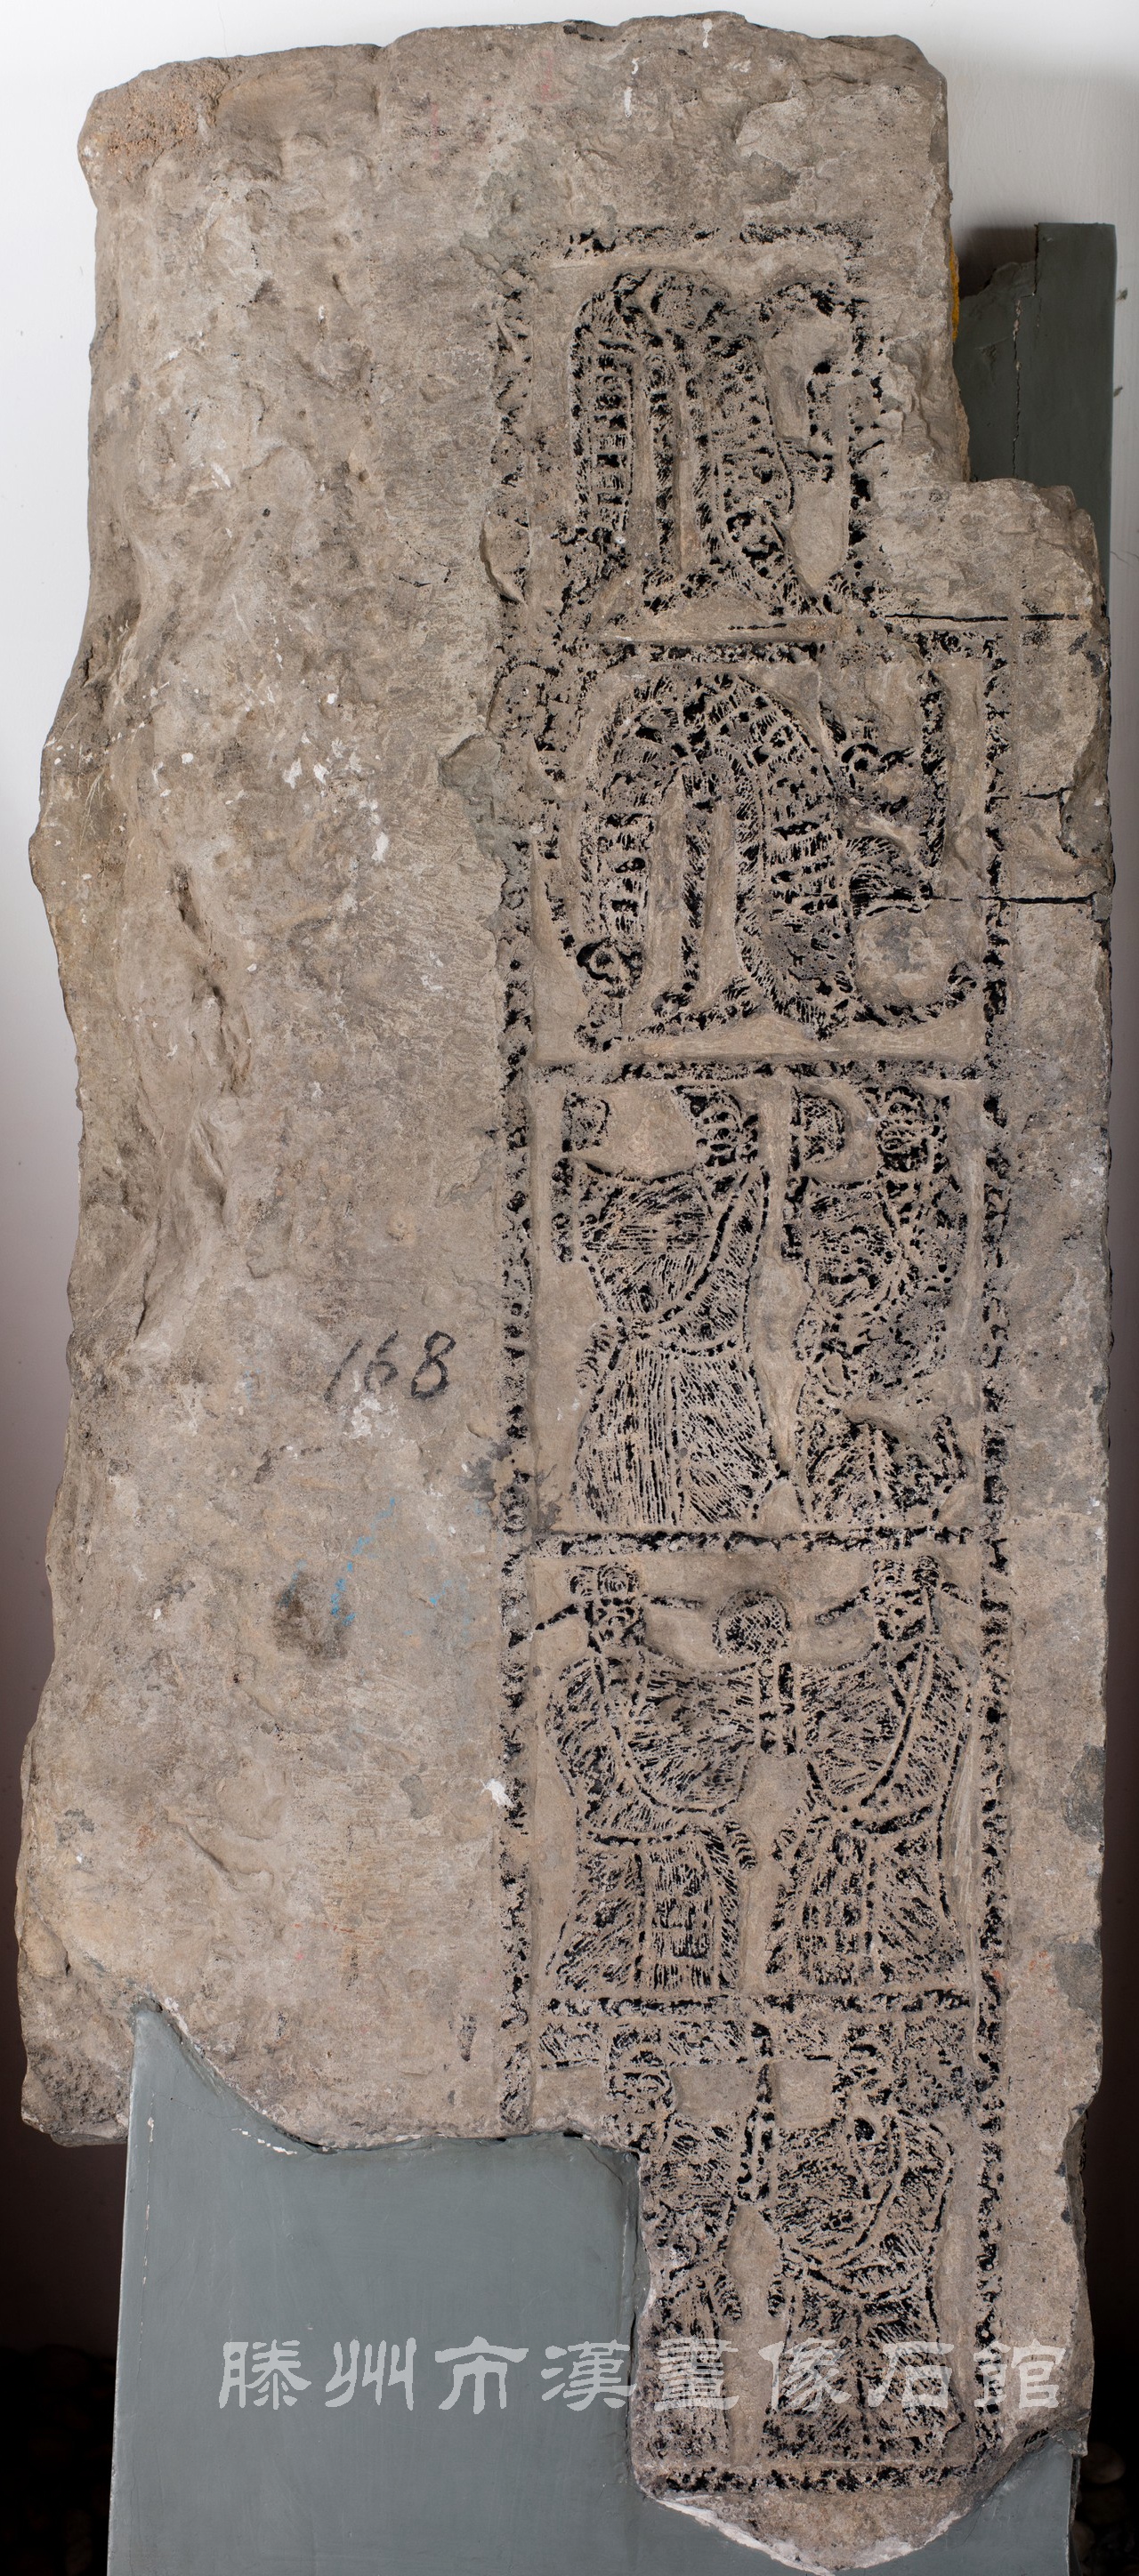 168
滕州市漢畫像石館